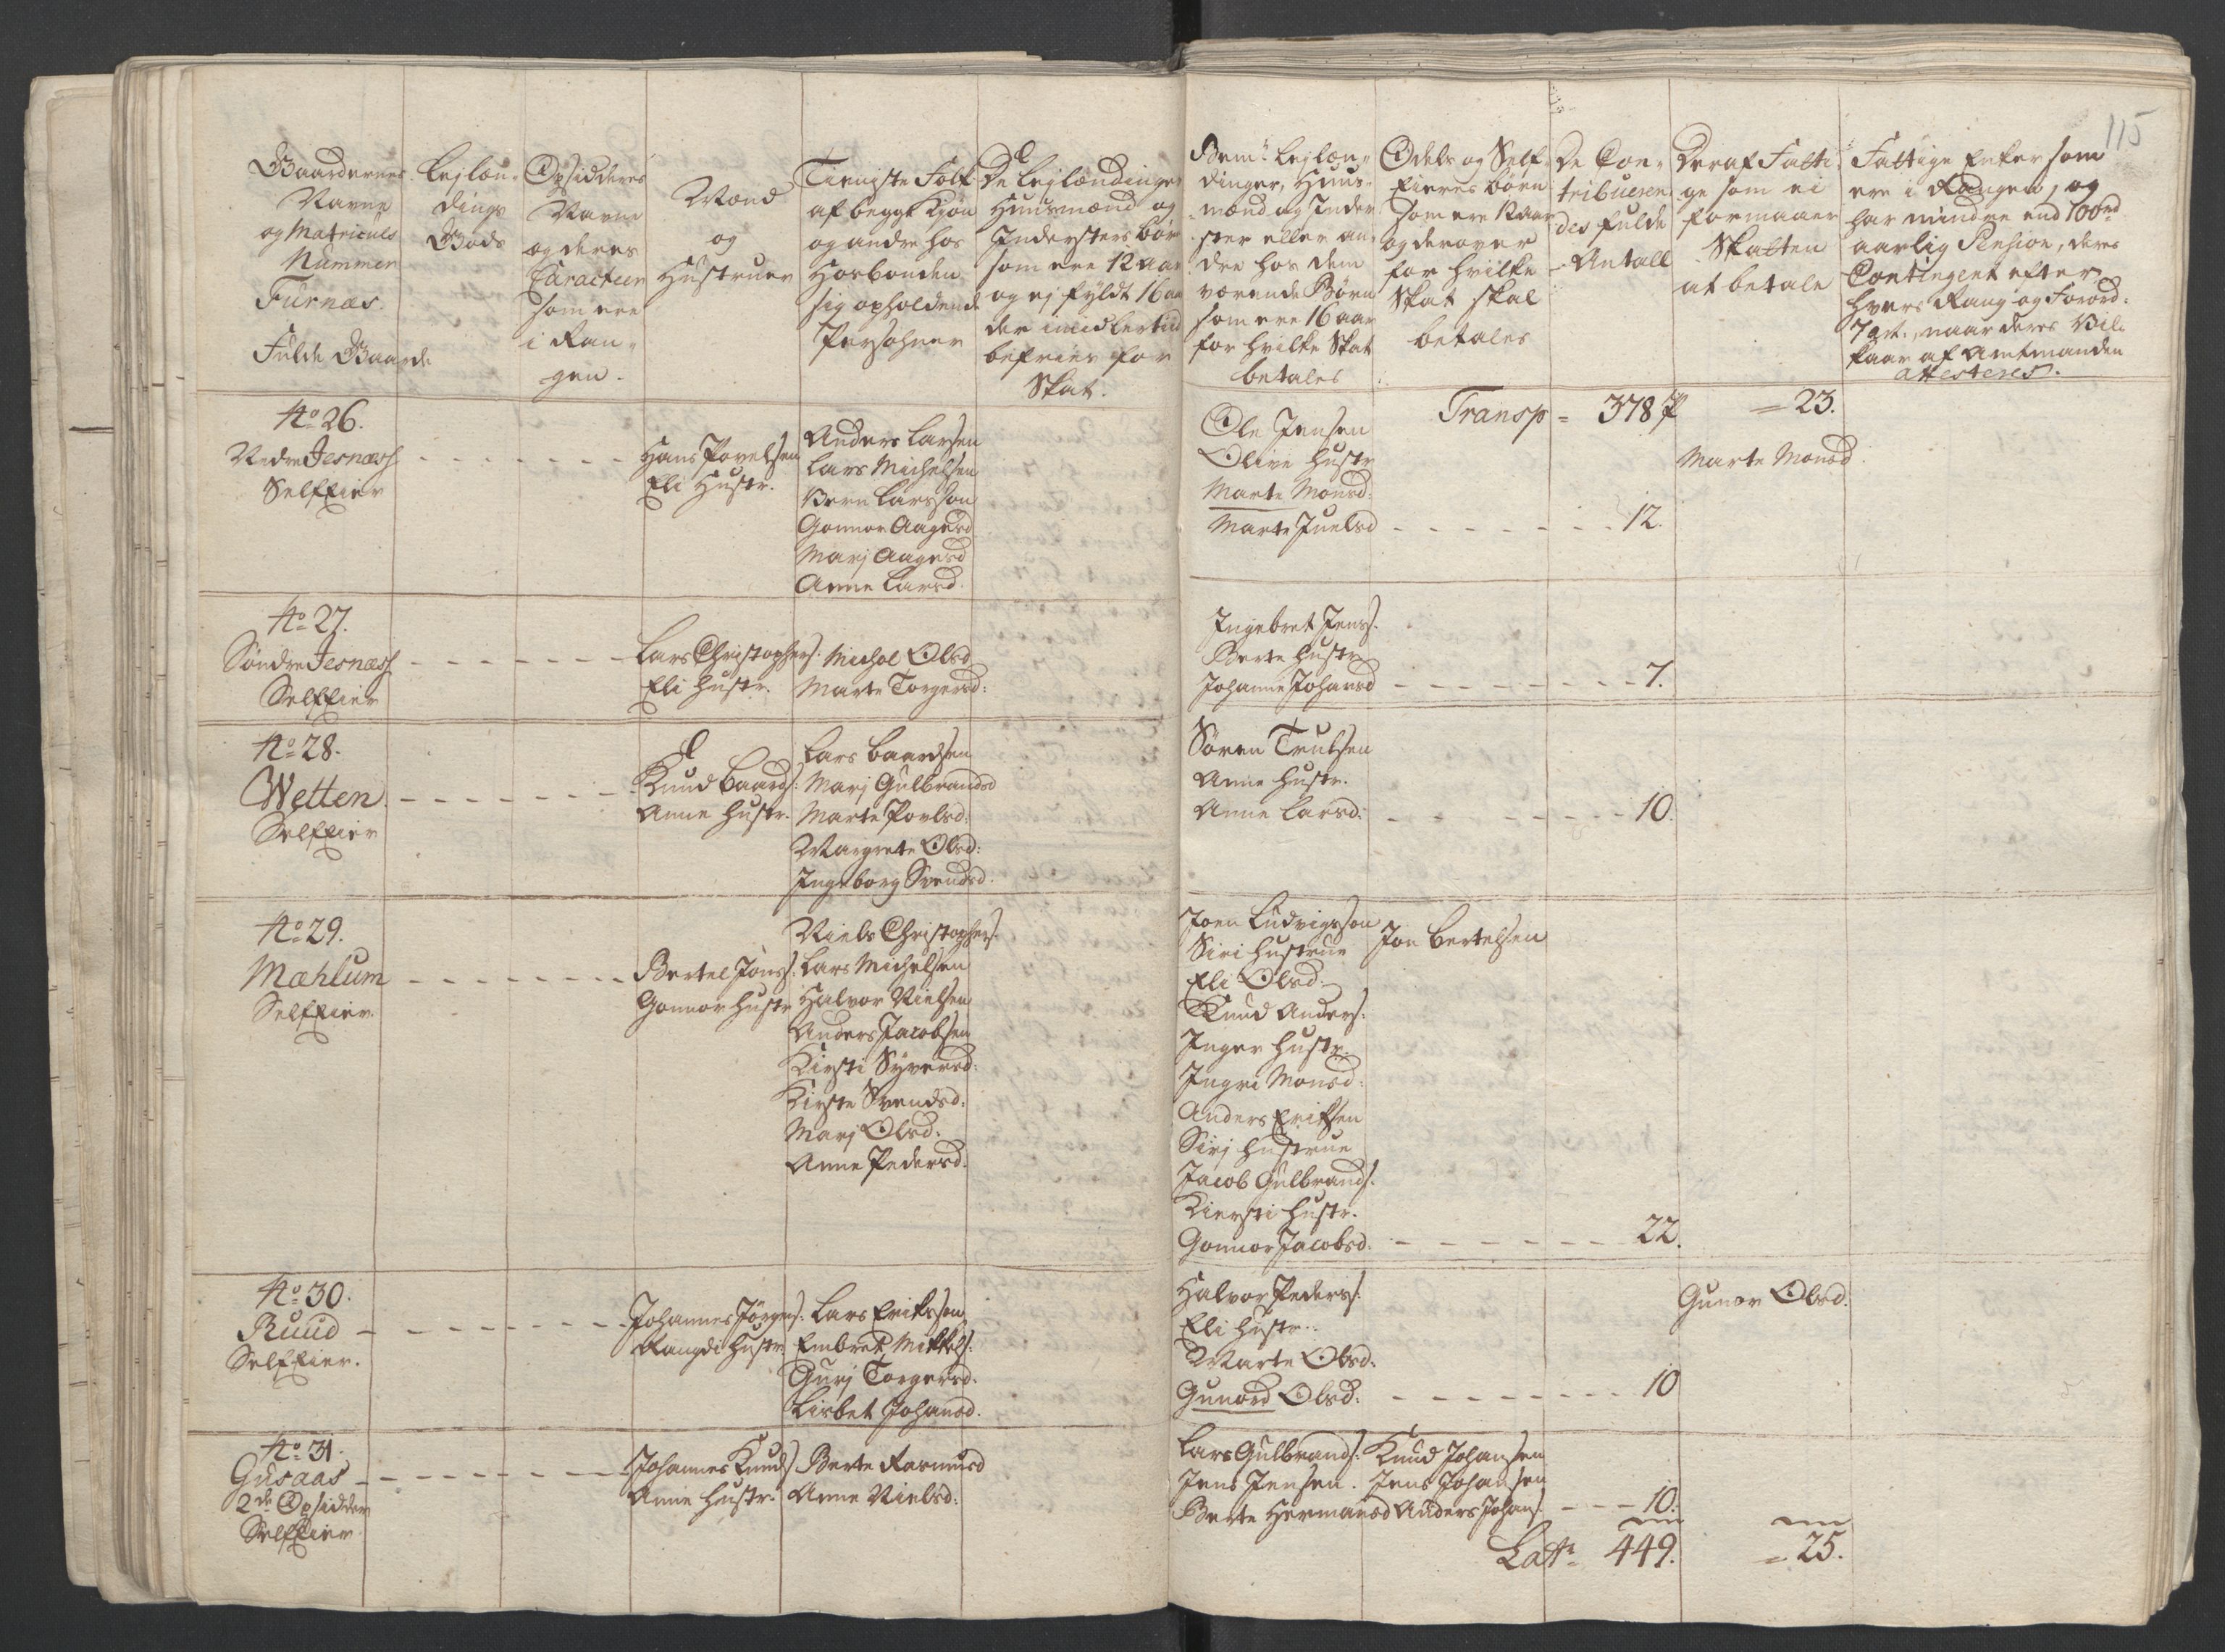 115
Gaardernes
Navne
og Matriculs
Nummer
Furnæs.
Fulde Gaarde
Lejlæn-
dings
Gods
Opsidderes
Navne
og deres
Caracteer
som ere
i Ran-
gen.
Mænd
og
Hustruer
Tieniste Folk
af begge Kiøn
og andre hos
Hosbonden
sig opholdende
Persohner
De Lejlændinger
Huusmænd og
Indersters børn
som ere 12 aar
og ej fyldt 16 aar
der imidlertid
befries for
Skat.
Bem.te Lejlæn-
dinger, Huus-
mænd og Inder
ster eller an-
dre hos dem
værende Børn
som ere 16 aar
for hvilke Skat
betales
Odels og Self
Eieres børn
som ere 12 aar
og derover
for hvilke
Skat skal
betales
De Con-
tribueren
des fulde
Antall
Deraf Fatti
ge som ei
formaaer
Skatten
at betale
Fattige Enker som
ere i Rangen, og
har mindre end 100 rd
aarlig Pension, deres
Contingent efter
hvers Rang og Forord:
7 art., naar deres Vil-
kaar af Amtmanden
attesteres.
Transp = 378 = 23.
No 26.
Nedre Jesnæss
Selfeier
Hans Povelsen
Eli Hustr.
Anders Larsen
Lars Michelsen
Bern Larsson
Gonnor Aagesd
Marj Aagesd
Anne Larsd.
Ole Jensen
Olive Hustr
Marte Monsd:
Marte Juelsd - - - 12.
Marte Monsd.
No 27.
Søndre Jesnæss
Selfeier
Lars Christophers:
Eli Hustr.
Michol Olsd
Marte Torgersd:
Ingebret Jens.
Berte Hustr
Johanne Johansd - - - 7.
No 28.
Wetten
Selfeier
Knud Baards:
Anne Hustr.
Lars Baardsen
Marj Gulbrandsd
Marte Povlsd:
Margrete Olsd:
Ingeborg Svendsd.
Søren Trulsen
Anne Hustr.
Anne Larsd: - - - 10.
No 29.
Mæhlum
Selfeier.
Bertel Jons.
Gonnor Hustr
Niels Christophers.
Lars Michelsen
Halvor Nielsen
Anders Jacobsen
Kirsti Syversd:
Kirste Svendsd:
Marj Olsd:
Anne Pedersd.
Joen Ludvigsson
Siri Hustrue
Eli Olsd:
Knud Anders:
Inger Hustr.
Ingri Monsd:
Anders Eriksen
Sirj Hustrue
Jacob Gulbrands.
Kiersti Hustr.
Gonnor Jacobsd. - - - 22.
Jon Bertelsen
No 30.
Ruud
Selfeier.
Johannes Jørgens:
Rangdi Hustr
Lars Erikssen
Embret Mikkels:
Gurj Torgersd.
Lisbet Johansd.
Halvor Peders.
Eli Hustr.
Marte Olsd:
Gunord Olsd: - - - 10
Gunor Olsd.
No 31.
Gusaas
2de Opsidder
Selfeier
Johannes Knuds
Anne Hustr.
Berte Rasmusd
Anne Nielsd:
Lars Gulbrands:
Jens Jensen.
Berte Hermansd
Knud Johansen
Jens Johansen
Anders Johans: - - - 10.
Lat. 449. = 25.